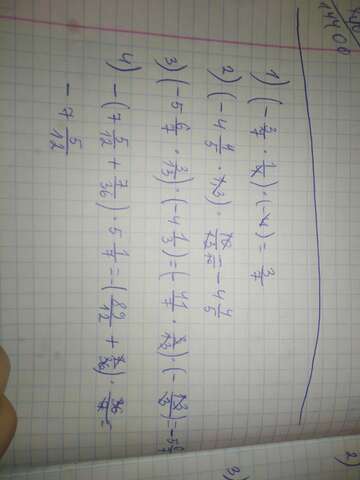 1) (- 3/7 · 1/4) · (-4) = 3/7
2) (-4 4/5 · 13) · 10/13 = -4 4/5
3) (-5 6/7 · 3/13) · (-4 1/3) = (- 41/7 · 3/13) · (- 13/3) = -5 6/7
4) -(7 5/12 + 7/36) · 5 1/7 = -(89/12 + 7/36) · 36/7 =
- 7 5/12
2)
3)